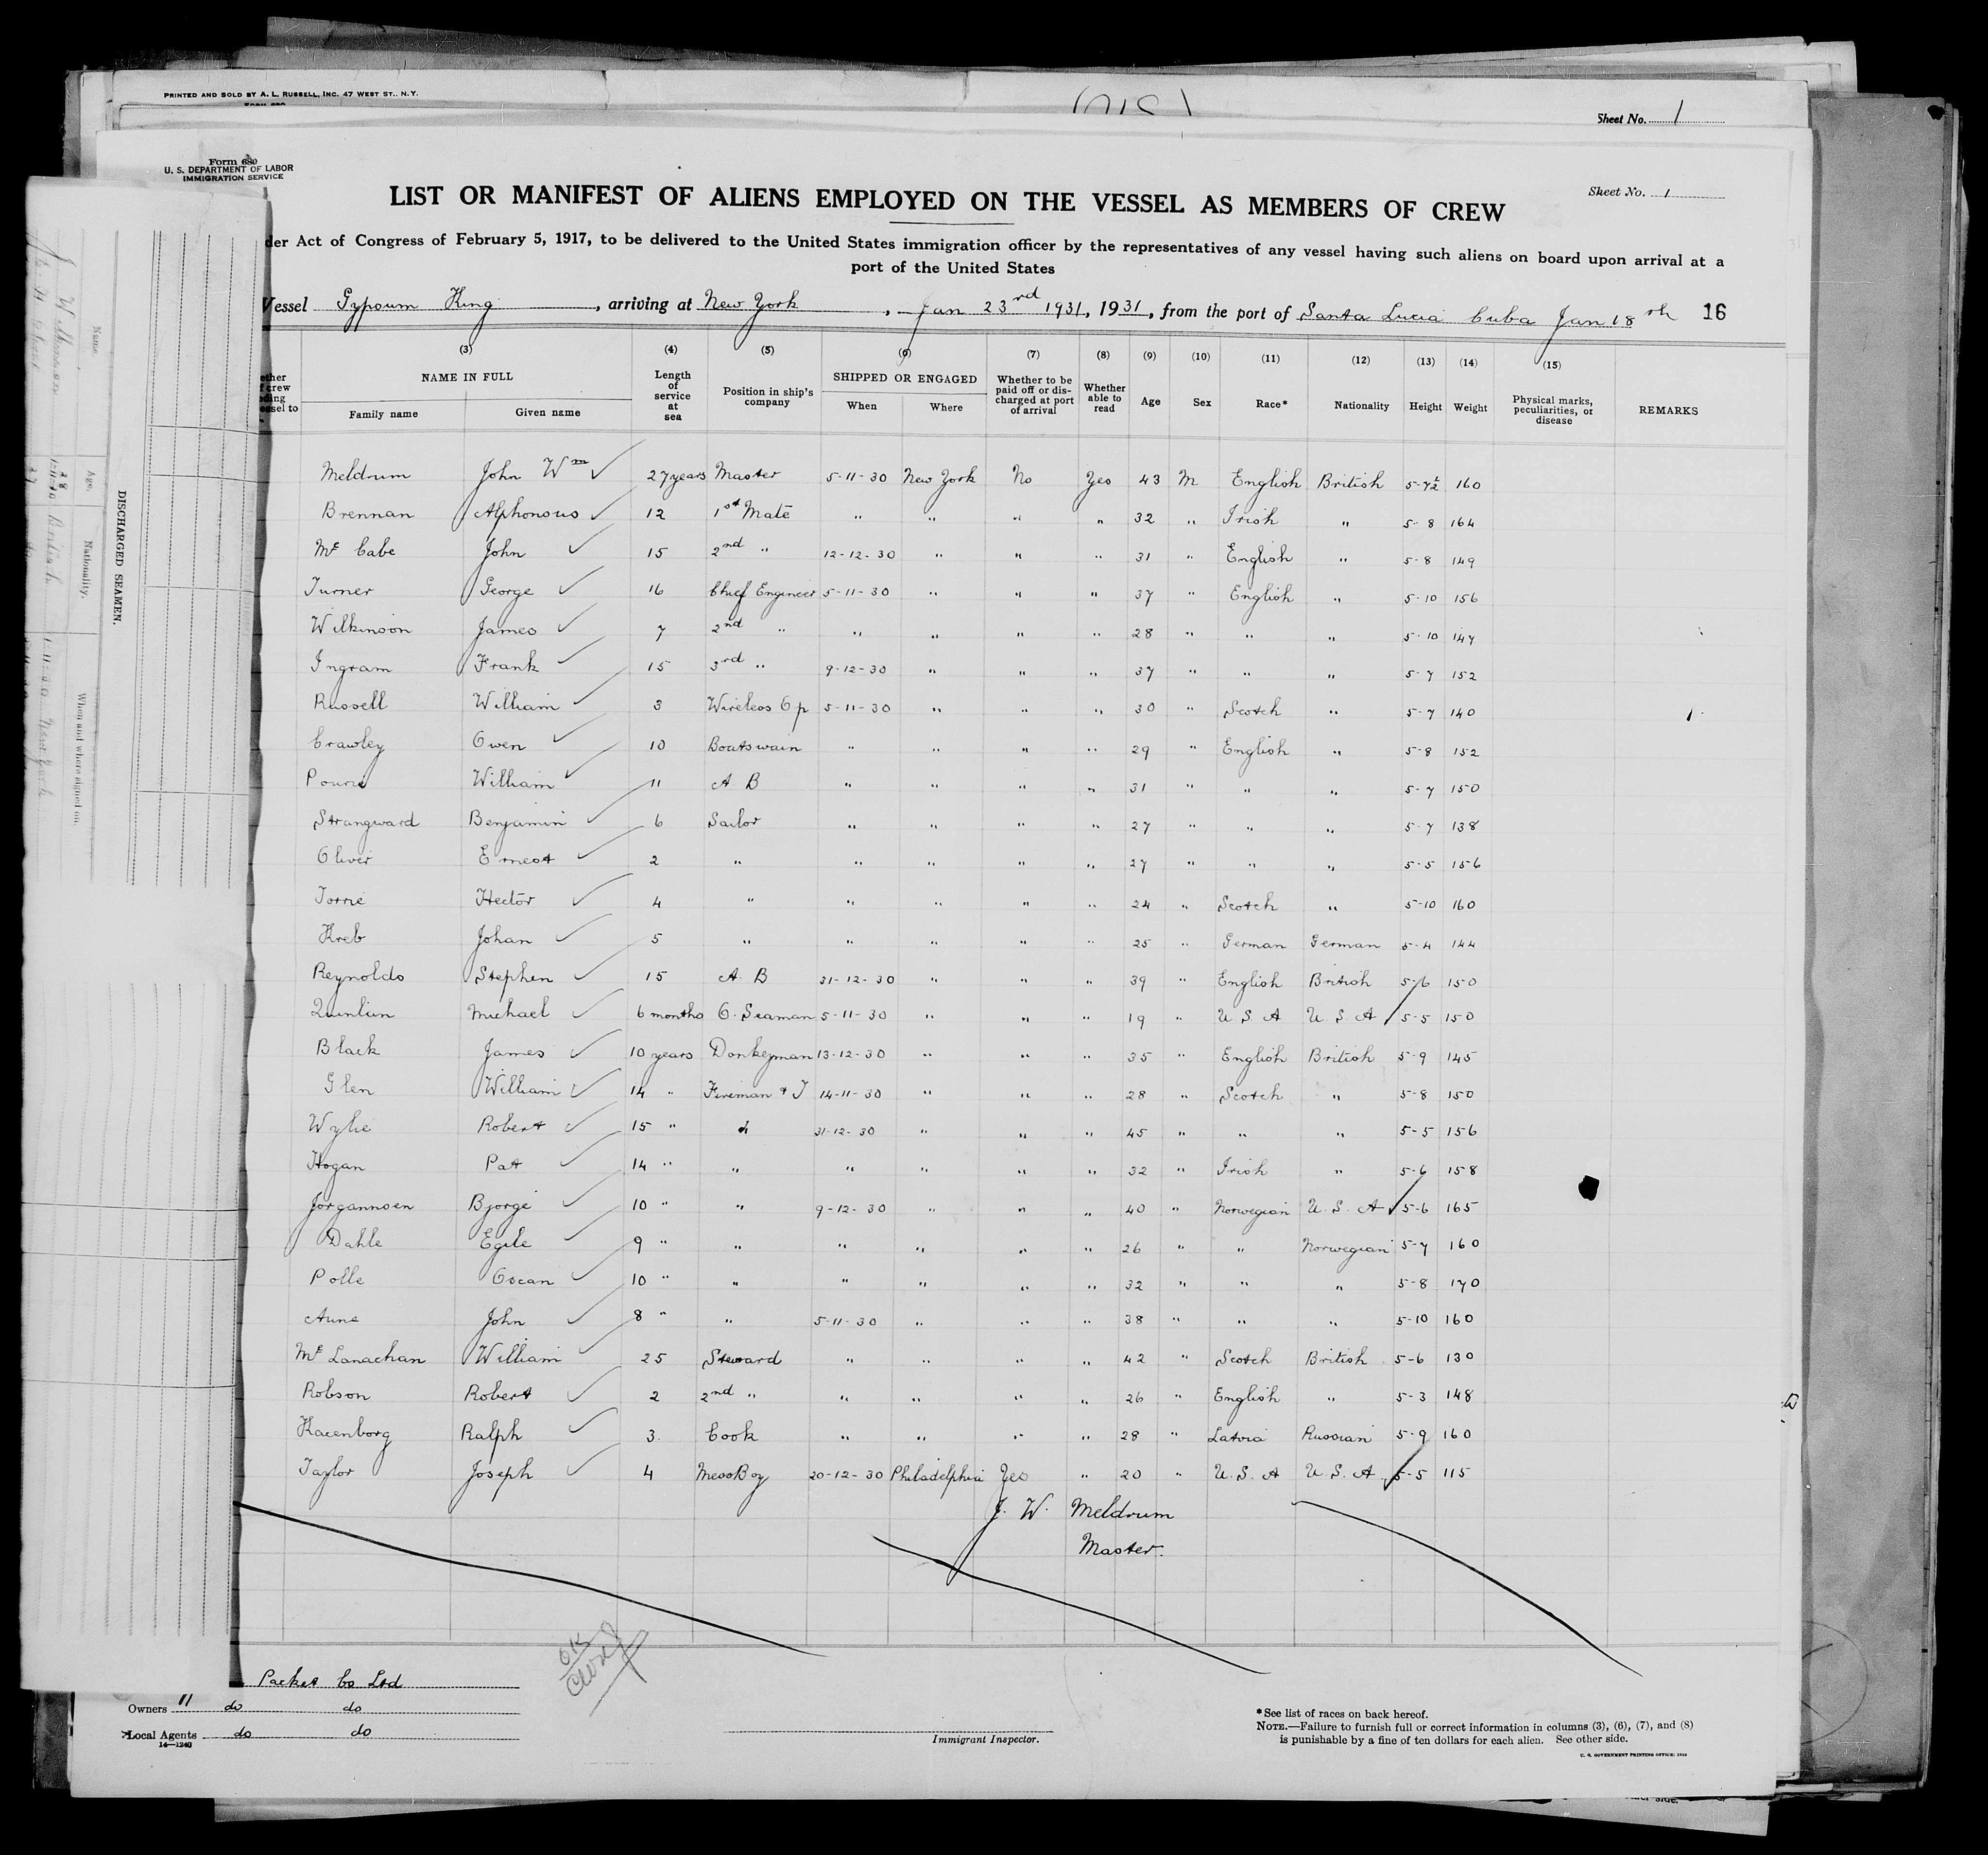 PRINTED AND SOLD BY A. L. RUSSELL, INC. 47 WEST ST., N.Y.
Sheet No. 1
Form 680
U. S. DEPARTMENT OF LABOR
IMMIGRATION SERVICE
Sheet No. 1
LIST OR MANIFEST OF ALIENS EMPLOYED ON THE VESSEL AS MEMBERS OF CREW
der Act of Congress of February 5, 1917, to be delivered to the United States immigration officer by the representatives of any vessel having such aliens on board upon arrival at a
port of the United States
Vessel Gypsum King, arriving at New York, Jan 23rd 1931, 1931, from the port of Santa Lucia Cuba Jan 18th 16
(3) (4) (5) (6) (7) (8) (9) (10) (11) (12) (13) (14) (15)
NAME IN FULL Length of service at sea Position in ship's company SHIPPED OR ENGAGED Whether to be paid off or discharged at port of arrival Whether able to read Age Sex Race* Nationality Height Weight Physical marks, peculiarities, or disease REMARKS
Family name Given name When Where
Meldrum John Wm 27 years Master 5-11-30 New York No Yes 43 M English British 5-7½ 160
Brennan Alphonsus 12 1st Mate " " " " 32 " Irish " 5-8 164
Mc Cabe John 15 2nd " 12-12-30 " " " 31 " English " 5-8 149
Turner George 16 Chief Engineer 5-11-30 " " " 37 " English " 5-10 156
Wilkinson James 7 2nd " " " " " 28 " " " 5-10 147
Ingram Frank 15 3rd " 9-12-30 " " " 37 " " " 5-7 152
Russell William 3 Wireless Op 5-11-30 " " " 30 " Scotch " 5-7 140
Crawley Owen 10 Boatswain " " " " 29 " English " 5-8 152
Pourie William 11 A B " " " " 31 " " " 5-7 150
Strangward Benjamin 6 Sailor " " " " 27 " " " 5-7 138
Oliver Ernest 2 " " " " " 27 " " " 5-5 156
Torrie Hector 4 " " " " " 24 " Scotch " 5-10 160
Kreb Johan 5 " " " " " 25 " German German 5-4 144
Reynolds Stephen 15 A. B 31-12-30 " " " 39 " English British 5-6 150
Quinlun Michael 6 months O. Seaman 5-11-30 " " " 19 " U. S. A U. S. A 5-5 150
Black James 10 years Donkeyman 13-12-30 " " " 35 " English British 5-9 145
Glen William 14 " Fireman & T 14-11-30 " " " 28 " Scotch " 5-8 150
Wylie Robert 15 " " 31-12-30 " " " 45 " " " 5-5 156
Hogan Pat 14 " " " " " " 32 " Irish " 5-6 158
Jorgannsen Bjorge 10 " " 9-12-30 " " " 40 " Norwegian U. S. A 5-6 165
Dahle Egile 9 " " " " " " 26 " " Norwegian 5-7 160
Polle Oscan 10 " " " " " " 32 " " " 5-8 170
Aune John 8 " " 5-11-30 " " " 38 " " " 5-10 160
Mc Lanachan William 25 Steward " " " " 42 " Scotch British 5-6 130
Robson Robert 2 2nd " " " " " 26 " English " 5-3 148
Kacenborg Ralph 3 Cook " " " " 28 " Latvia Russian 5-9 160
Taylor Joseph 4 Mess Boy 20-12-30 Philadelphia Yes " 20 " U. S. A U. S. A 5-5 115
J. W. Meldrum
Master.
Packet Co Ltd
Owners " do do
Local Agents do do
14—1240
Immigrant Inspector.
*See list of races on back hereof.
NOTE.—Failure to furnish full or correct information in columns (3), (6), (7), and (8)
is punishable by a fine of ten dollars for each alien. See other side.
DISCHARGED SEAMEN.
Name. Age. Nationality. When and where signed on.